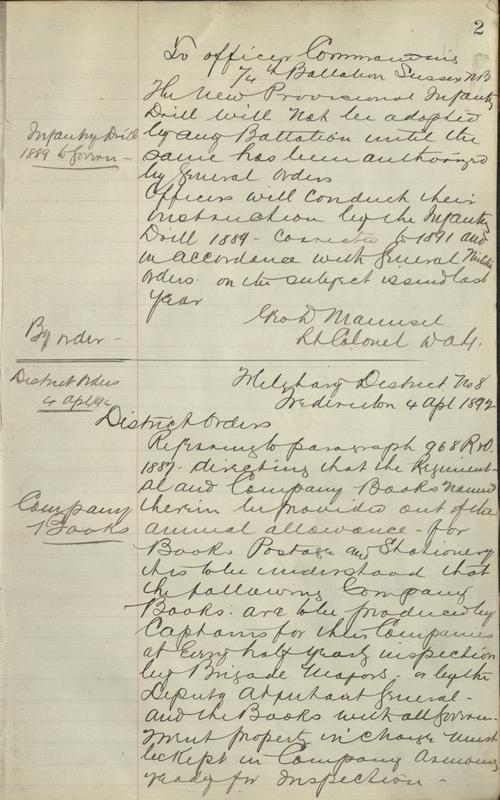 2
To officer Commanding
74th Battalion Sussex NB
The New Provisional Infantry
Drill will Not be adopted
by any Battalion until the
same has been authorized
by General Orders
Infantry Drill
1889 to Govern -
Officers will conduct their
instruction by the Infantry
Drill 1889 - Corrected to 1891 and
in accordance with General Militia
orders on the subject issued last
year
Geo D Maunsel
Lt Colonel D A G.
By order -
District Orders
4 Apl 92
Military District No 8
Fredericton 4 Apl 1892
District Orders
Refering to paragraph 968 R&O.
1887 - directing that the Regiment-
al and Company Books Named
therein be provided out of the
annual allowance - for
Company
Books
Books Postage and Stationery
it is to be understood that
the following Company
Books are to be produced by
Captains for their Companies
at Every half yearly inspection
by Brigade Majors, or by the
Deputy Adjutant General -
and the Books with all Govern-
ment property in charge must
be kept in Company Armoury
ready for Inspection -